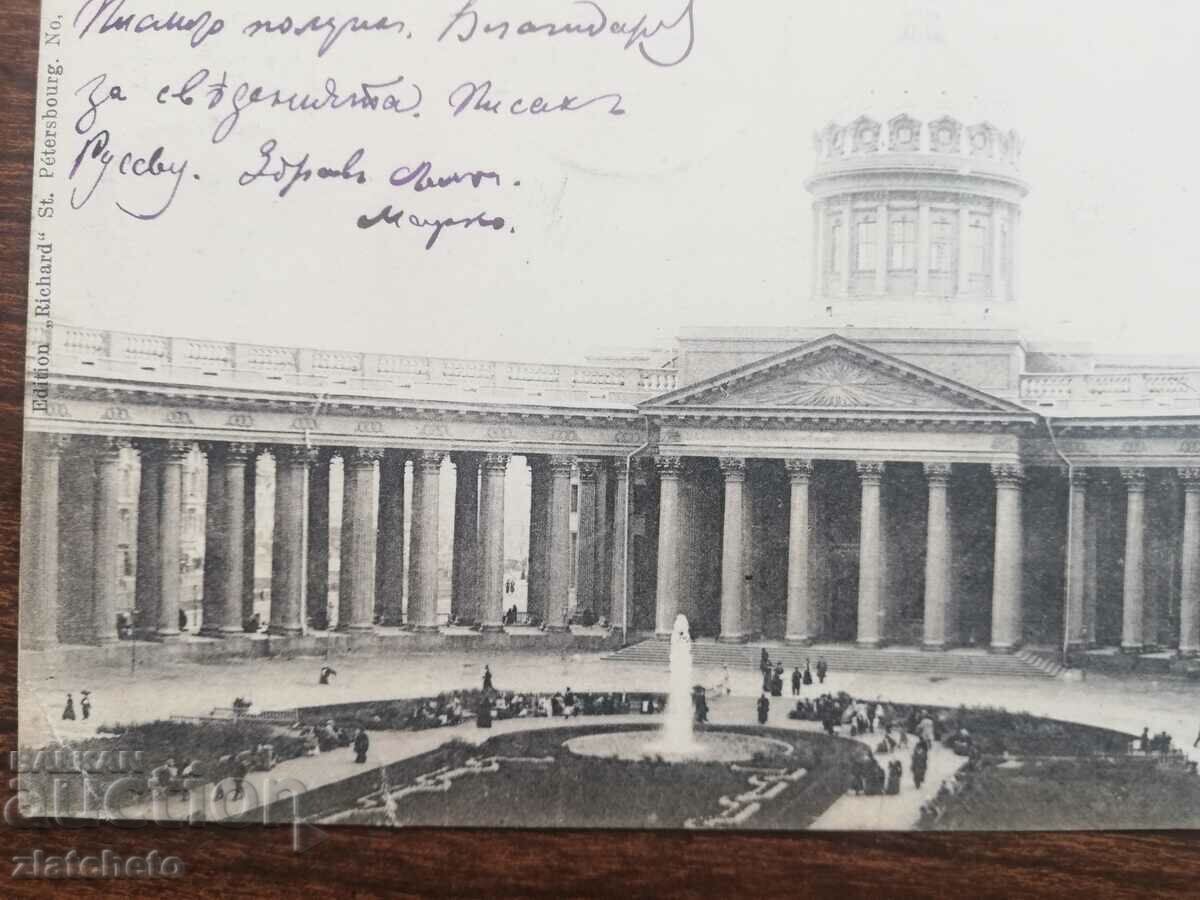 Писмо получих. Благодаря
за свѣденията. Писахъ
Русеву. Здравъ съмъ.
Марко.
Edition „Richard“ St. Pétersbourg. No.
BALKAN
auction
zlatcheto